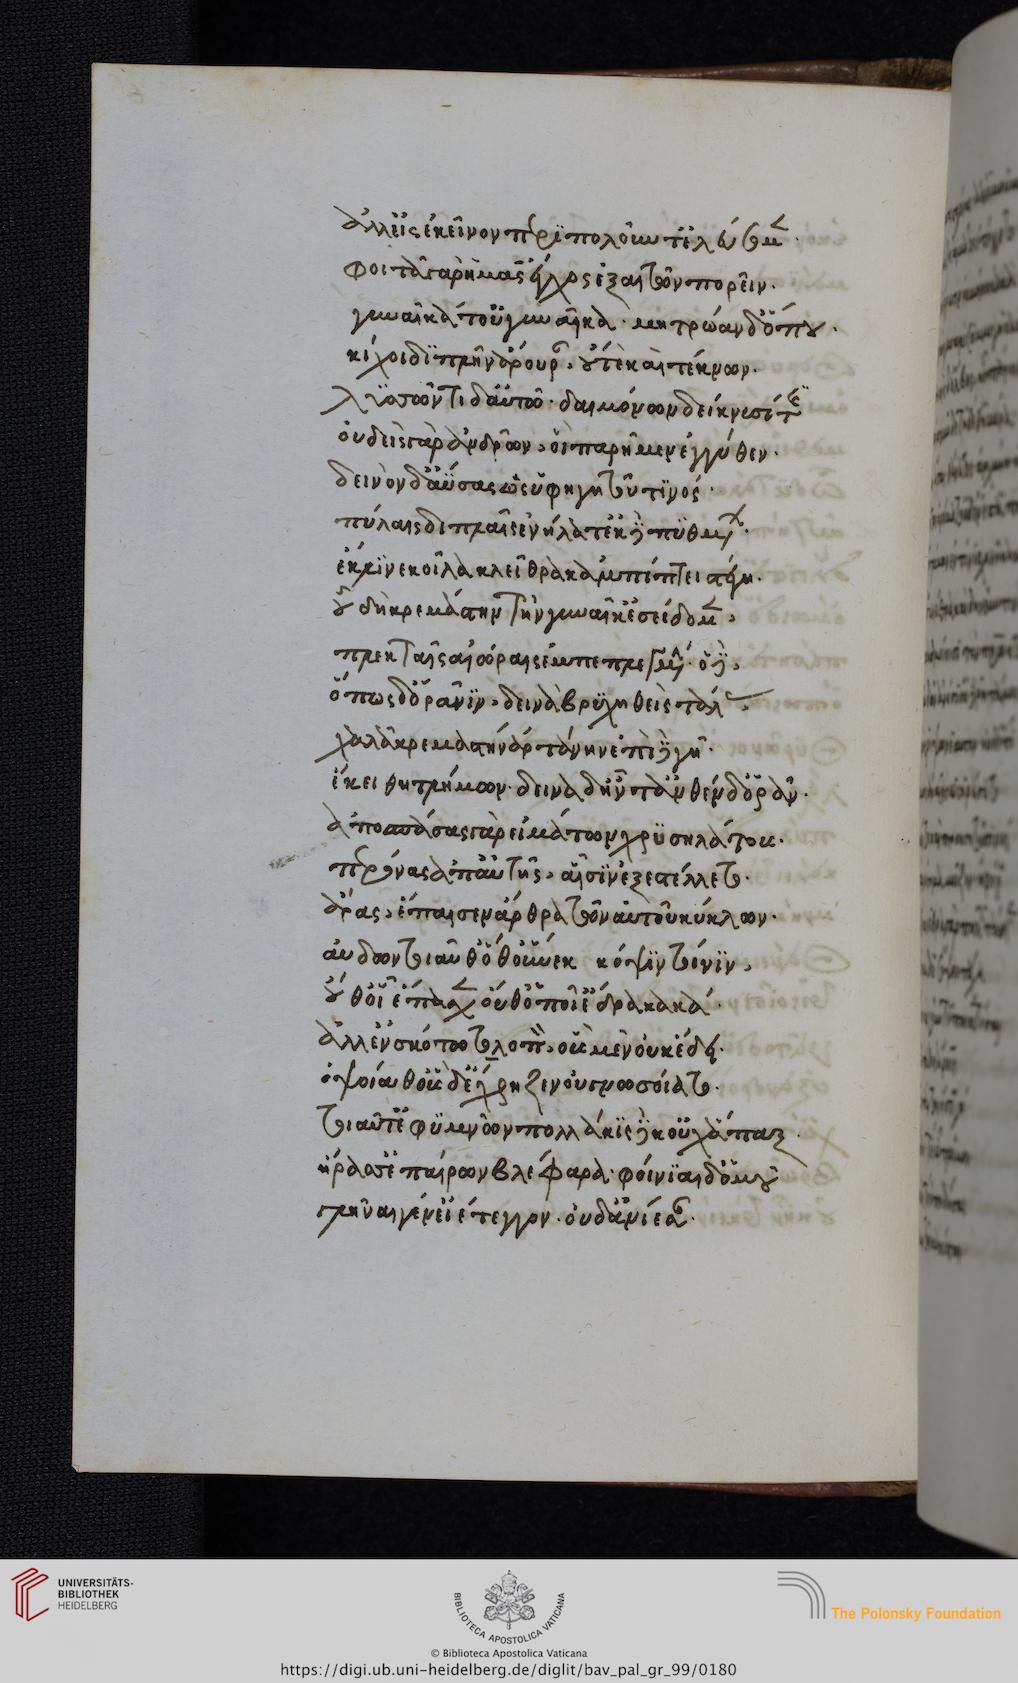 ἀλλ' εἰς ἐκεῖνον περιπολοῦντ' ἐλεύσσομεν.
φοιτᾷ γὰρ ἡμᾶς ἔγχος ἐξαιτῶν πορεῖν.
γυναῖκά τ' οὐ γυναῖκα. μητρῴαν δ' ὅπου.
κίχοι διπλῆν ἄρουραν, οὗ τε καὶ τέκνων.
λυσσῶντι δ' αὐτῷ. δαιμόνων δείκνυσί τις
οὐδεὶς γὰρ ἀνδρῶν, οἳ παρῆμεν ἐγγύθεν.
δεινὸν δ' ἀΰσας ὡς ὑφηγητοῦ τινός.
πύλαις διπλαῖς ἐνήλατ' ἐκ δὲ πυθμένων.
ἔκλινε κοῖλα κλεῖθρα κἀμπίπτει στέγη.
οὗ δὴ κρεμάστην τὴν γυναῖκ' ἐσείδομεν,
πλεκταῖς αἰώραις ἐμπεπλεγμένην. ὁ δὲ,
ὅπως δ' ὁρᾷ νιν, δεινὰ βρυχηθεὶς τάλας,
χαλᾷ κρεμαστὴν ἀρτάνην ἐπὶ δὲ γῇ.
ἔκειθ' ἡ τλήμων. δεινὰ δ' ἦν τἀνθένδ' ὁρᾶν.
ἀποσπάσας γὰρ εἱμάτων χρυσηλάτους.
περόνας ἀπ' αὐτῆς, αἷσιν ἐξεστέλλετο.
ἄρας, ἔπαισεν ἄρθρα τῶν αὑτοῦ κύκλων.
αὐδῶν τοιαῦθ' ὁθούνεκ' οὐκ ὄψοιντό νιν,
οὔθ' οἷ' ἔπασχεν οὔθ' ὁποῖ' ἔδρα κακά.
ἀλλ' ἐν σκότῳ τολοιπὸν, οὓς μὲν οὐκ ἔδει.
ὀψοίαθ' οὓς δ' ἔχρῃζεν οὐ γνωσοίατο.
τοιαῦτ' ἐφυμνῶν πολλάκις δὲ κοὐχ' ἅπαξ.
ἤρασσ' ἐπαίρων βλέφαρα. φοίνιαι δ' ὁμοῦ
γλῆναι γένει' ἔτεγγον. οὐδ' ἀνίεσαν.
UNIVERSITÄTS-
BIBLIOTHEK
HEIDELBERG
BIBLIOTECA APOSTOLICA VATICANA
The Polonsky Foundation
© Biblioteca Apostolica Vaticana
https://digi.ub.uni-heidelberg.de/diglit/bav_pal_gr_99/0180